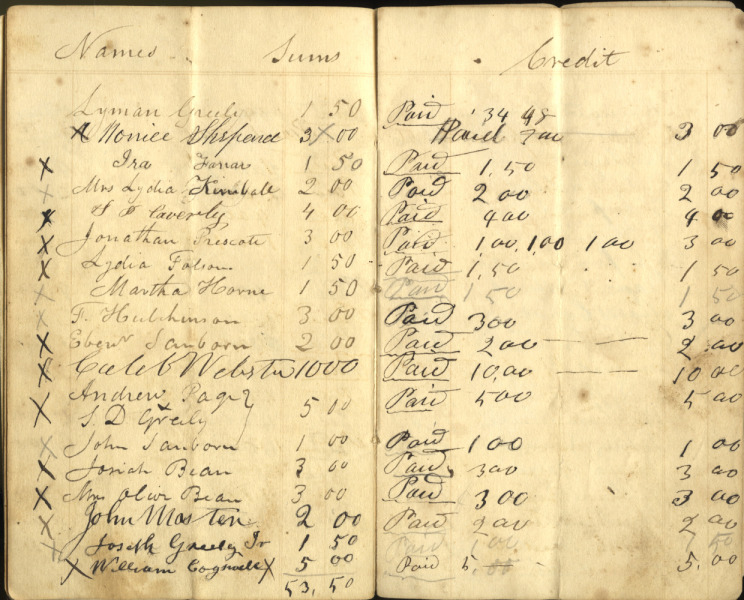 Names Sums Credit
Lyman Greely 1 50 Paid 1 34 48
X Horriee Shepard 3 00 Paid 300 3 00
X Ira Farrar 1 50 Paid 1,50 1 50
X Mrs Lydia Kimball 2 00 Paid 2 00 2 00
X Caverly 4 00 Paid 4 00 4 00
X Jonathan Prescott 3 00 Paid 1,00, 1,00 1 00 3 00
X Lydia Folsom 1 50 Paid 1,50 1 50
X Martha Horne 1 50 Paid 1 50 1 50
X F. Hutchinson 3 00 Paid 3 00 3 00
X Ebenr Sanborn 2 00 Paid 2 00 2 00
X Caleb Webster 10 00 Paid 10,00 10 00
X Andrew Page } 5 00 Paid 5 00 5 00
S. D Greely
X John Sanborn 1 00 Paid 1 00 1 00
X Josiah Bean 3 00 Paid 3 00 3 00
X Mrs Olive Bean 3 00 Paid 3 00 3 00
X John Masten 2 00 Paid 2 00 2 00
X Joseph Greely Jr 1 50 Paid 50
X William Cogswell X 5 00 Paid 5. 5.00
53,50